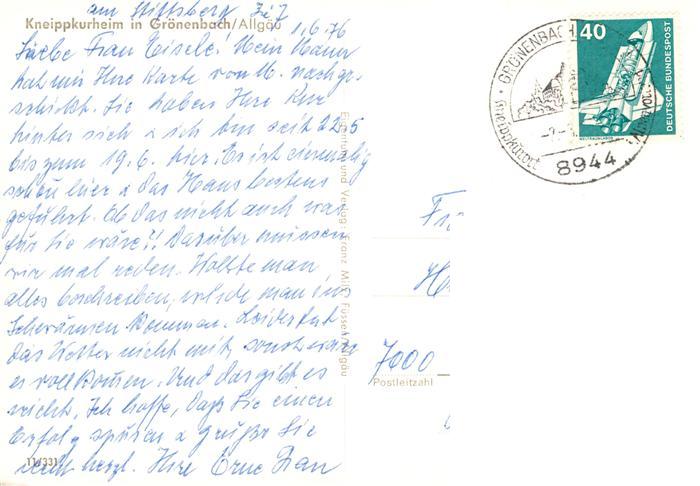 am Stiftsberg Zi 7
Kneippkurheim in Grönenbach/Allgäu
1.6.76
Liebe Frau Eisele! Mein Mann
hat mir Ihre Karte vom 16. nachge-
schickt. Sie haben Ihre Kur
hinter sich & ich bin seit 22.5
bis zum 19.6. hier. Es ist einmalig
schön hier & das Haus bestens
geführt. Ob das nicht auch was
für Sie wäre?! Darüber müssen
wir mal reden. Wollte man
alles beschreiben, würde man ins
Schwärmen kommen. Leider hat
das Wetter nicht mit, sonst wäre
es vollkommen. Und das gibt es
nicht. Ich hoffe, daß Sie einen
Erfolg spüren & grüße Sie
recht herzl. Ihre Erne Frau
11/331
Eigentum und Verlag: Franz Milz Füssen/Allgäu
GRÖNENBACH
8944
Kneippkurort
40
DEUTSCHE BUNDESPOST
WELTRAUMLABOR
7000
Postleitzahl